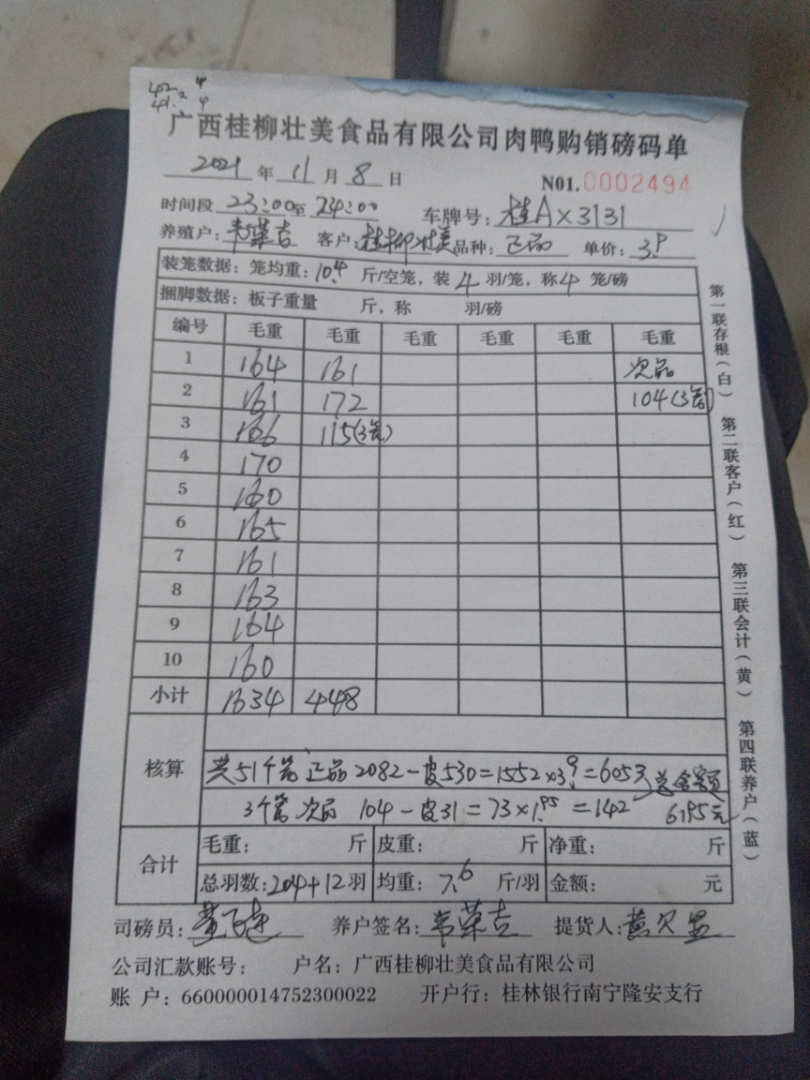 42.2
41.2
广西桂柳壮美食品有限公司肉鸭购销磅码单
2021 年 11 月 8 日 N01.0002494
时间段 23:00至 24:00 车牌号: 桂A×3131
养殖户: 韦荣吉 客户: 桂柳壮美 品种: 正品 单价: 3.9
装笼数据: 笼均重: 10.4 斤/空笼, 装 4 羽/笼, 称 4 笼/磅
捆脚数据: 板子重量 斤, 称 羽/磅
编号 毛重 毛重 毛重 毛重 毛重 毛重
1 164 161 次品
2 161 172 104(3笼)
3 166 115(3笼)
4 170
5 160
6 165
7 161
8 163
9 164
10 160
小计 1634 448
核算 共51个笼 正品 2082-皮530=1552×3.9=6053 总金额
3个笼 次品 104-皮31=73×1.95=142 6195元
合计 毛重: 斤 皮重: 斤 净重: 斤
总羽数: 204+12羽 均重: 7.6 斤/羽 金额: 元
司磅员: 养户签名: 韦荣吉 提货人: 黄
公司汇款账号: 户名: 广西桂柳壮美食品有限公司
账 户: 660000014752300022 开户行: 桂林银行南宁隆安支行
第一联存根(白) 第二联客户(红) 第三联会计(黄) 第四联养户(蓝)